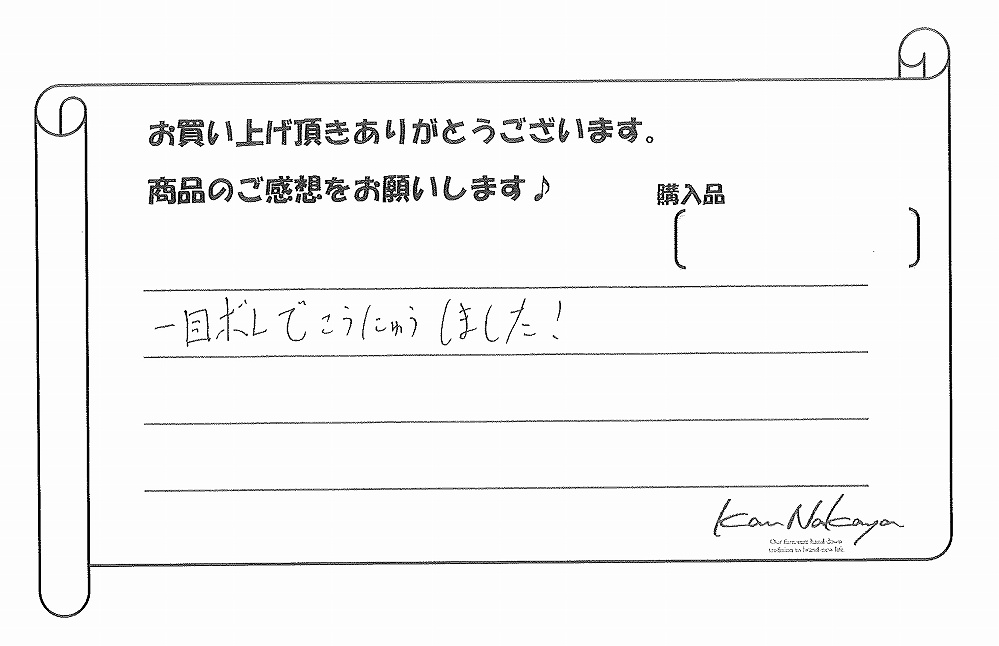 お買い上げ頂きありがとうございます。
商品のご感想をお願いします♪
購入品
一目ボレでこうにゅうしました!
Kan Nakaya
Our furniture hand down
tradition to brand-new life